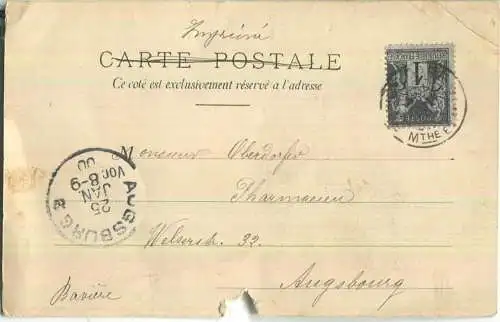 Imprimé
CARTE POSTALE
Ce coté est exclusivement réservé a l'adresse
MTHE E
Monsieur Oberdorfer
Pharmacien
Welserstr. 32.
Augsbourg
Bavière
AUGSBURG 2
25
JAN
Vor. 8-9
00